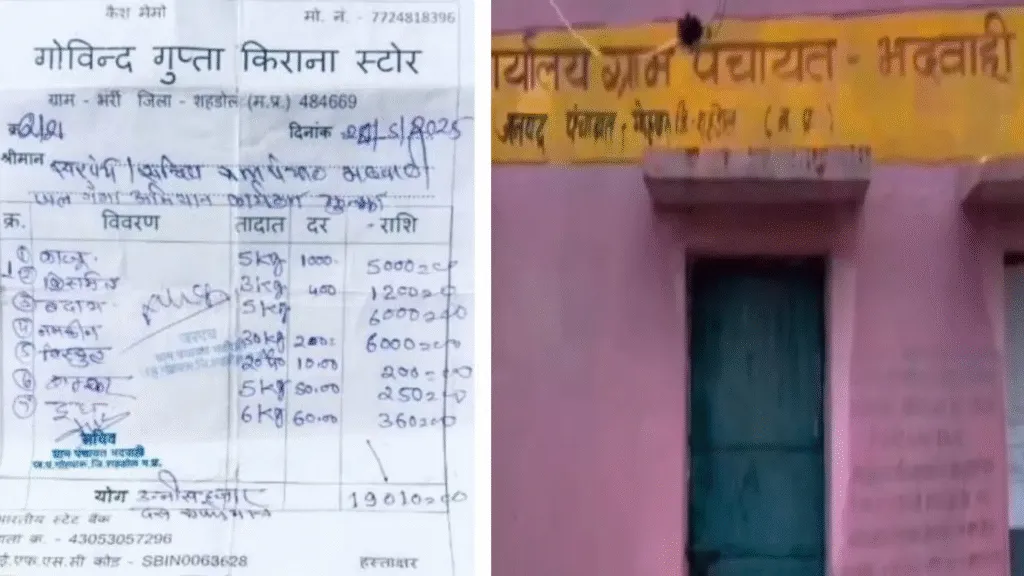 कैश मेमो
मो. नं. - 7724818396
गोविन्द गुप्ता किराना स्टोर
ग्राम - भर्री जिला - शहडोल (म.प्र.) 484669
क्र.
दिनांक /5/2025
श्रीमान सरपंच / सचिव ग्राम पंचायत भदवाही
जल गंगा अभियान
क्र. विवरण तादात दर राशि
1 काजू 5 kg 1000 5000=00
2 किसमिस 3 kg 400 1200=00
3 बदाम 5 kg 6000=00
4 नमकीन 30 kg 200 6000=00
5 बिस्कुट 20 10.00 200=00
6 शक्कर 5 kg 50.00 250=00
7 दूध 6 kg 60.00 360=00
सरपंच
सचिव
ग्राम पंचायत भदवाही
ज.पं. गोहपारू, जि. शहडोल म.प्र.
योग उन्नीस हजार 19010=00
दस रूपये मात्र
भारतीय स्टेट बैंक
ाता क. - 43053057296
ई.एफ.एस.सी कोड - SBIN0063628
हस्ताक्षर
र्यालय ग्राम पंचायत - भदवाही
जनपद पंचायत - जि. शहडोल (म.प्र.)